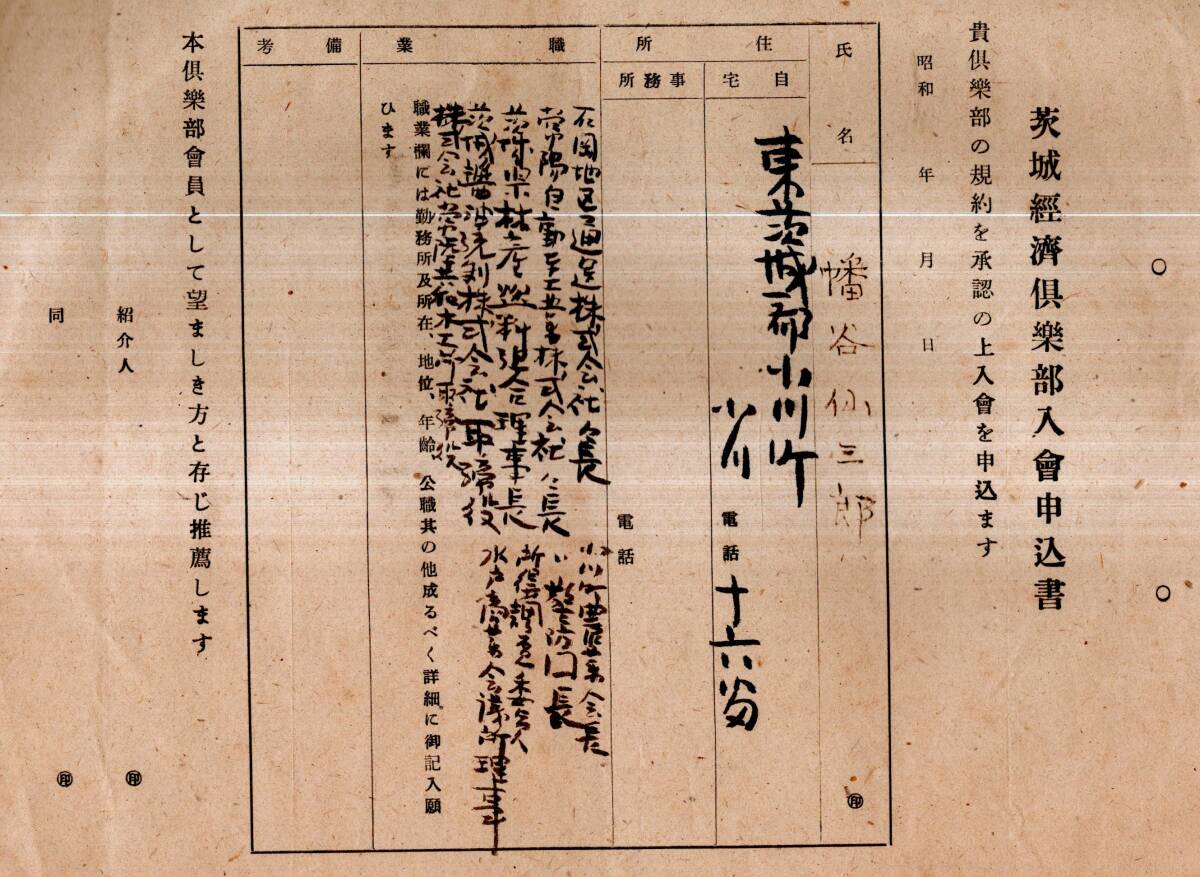 茨城經濟俱樂部入會申込書
貴俱樂部の規約を承認の上入會を申込ます
昭和 年 月 日
氏名
幡谷仙三郎
㊞
住所
自宅
東茨城郡小川町
小川
電話 十六番
事務所
電話
職業
石岡地区通运株式会社々長
常陽自動車工業株式会社々長
茨城県林産燃料組合理事長
茨城醬油統制株式会社取締役
株式会社常陸共和木工所取締役
小川町農業会長
〃警防団長
所得調査委員
水戸商業会議所理事
職業欄には勤務所及所在、地位、年齡、公職其の他成るべく詳細に御記入願
ひます
備考
本俱樂部會員として望ましき方と存じ推薦します
紹介人 ㊞
同 ㊞